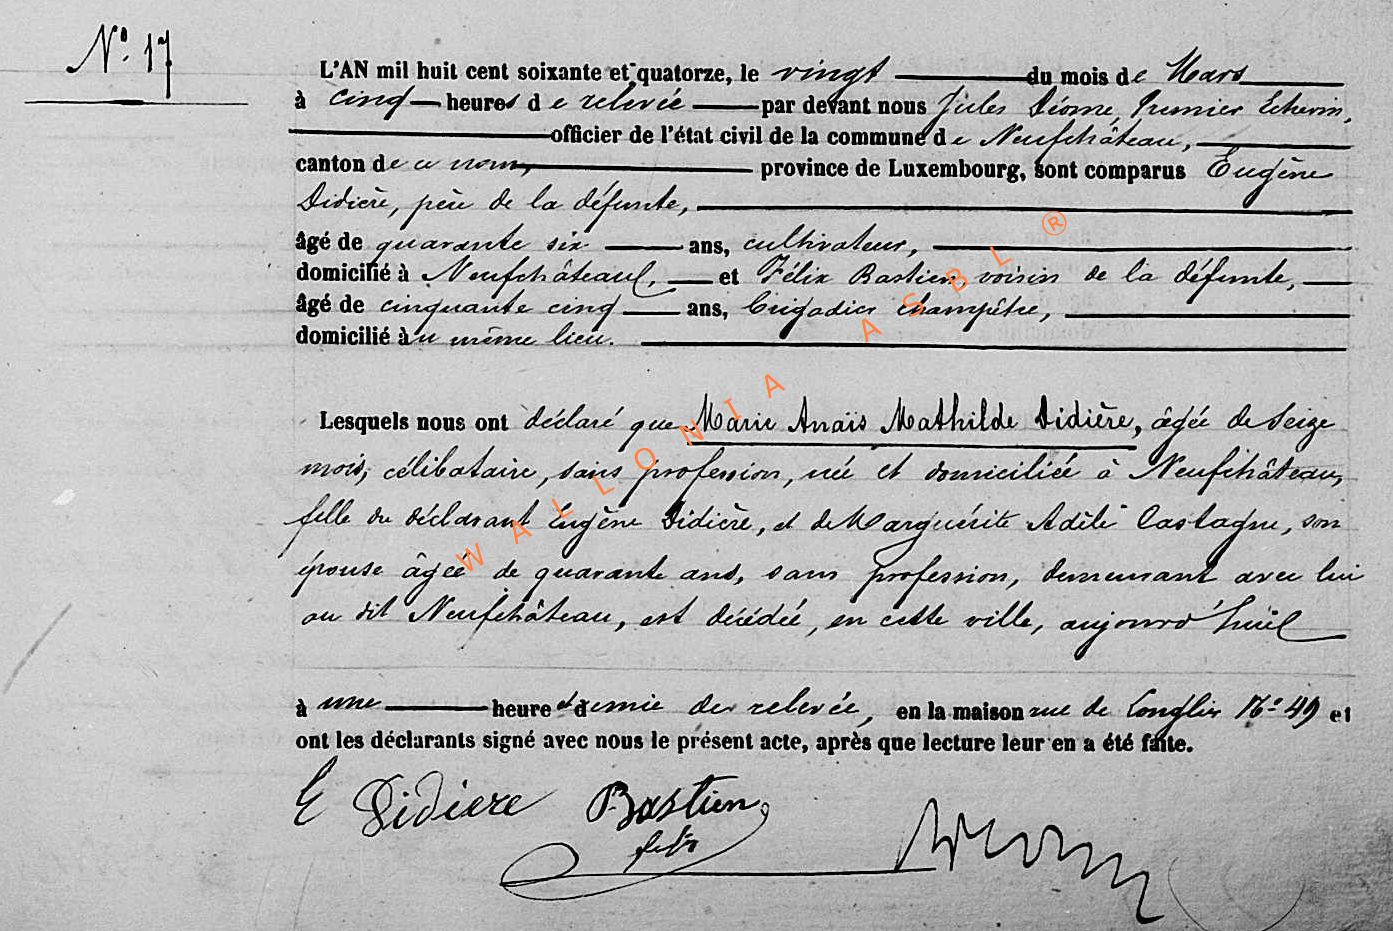 N° 17
L'AN mil huit cent soixante et quatorze, le vingt du mois de Mars
à cinq heures de relevée par devant nous Jules Déome, Premier Echevin,
officier de l'état civil de la commune de Neufchâteau,
canton de ce nom, province de Luxembourg, sont comparus Eugène
Didière, père de la défunte,
âgé de quarante six ans, cultivateur,
domicilié à Neufchâteau, et Félix Bastien, voisin de la défunte,
âgé de cinquante cinq ans, brigadier champêtre,
domicilié au même lieu.
Lesquels nous ont déclaré que Marie Anaïs Mathilde Didière, âgée de seize
mois, célibataire, sans profession, née et domiciliée à Neufchâteau,
fille du déclarant Eugène Didière, et de Marguérite Adèle Castagne, son
épouse âgée de quarante ans, sans profession, demeurant avec lui
au dit Neufchâteau, est décédée, en cette ville, aujourd'hui
à une heure et demie de relevée, en la maison rue de Longlier N° 49 et
ont les déclarants signé avec nous le présent acte, après que lecture leur en a été faite.
E Didiere Bastien
felix
WALLONIA ASBL ®